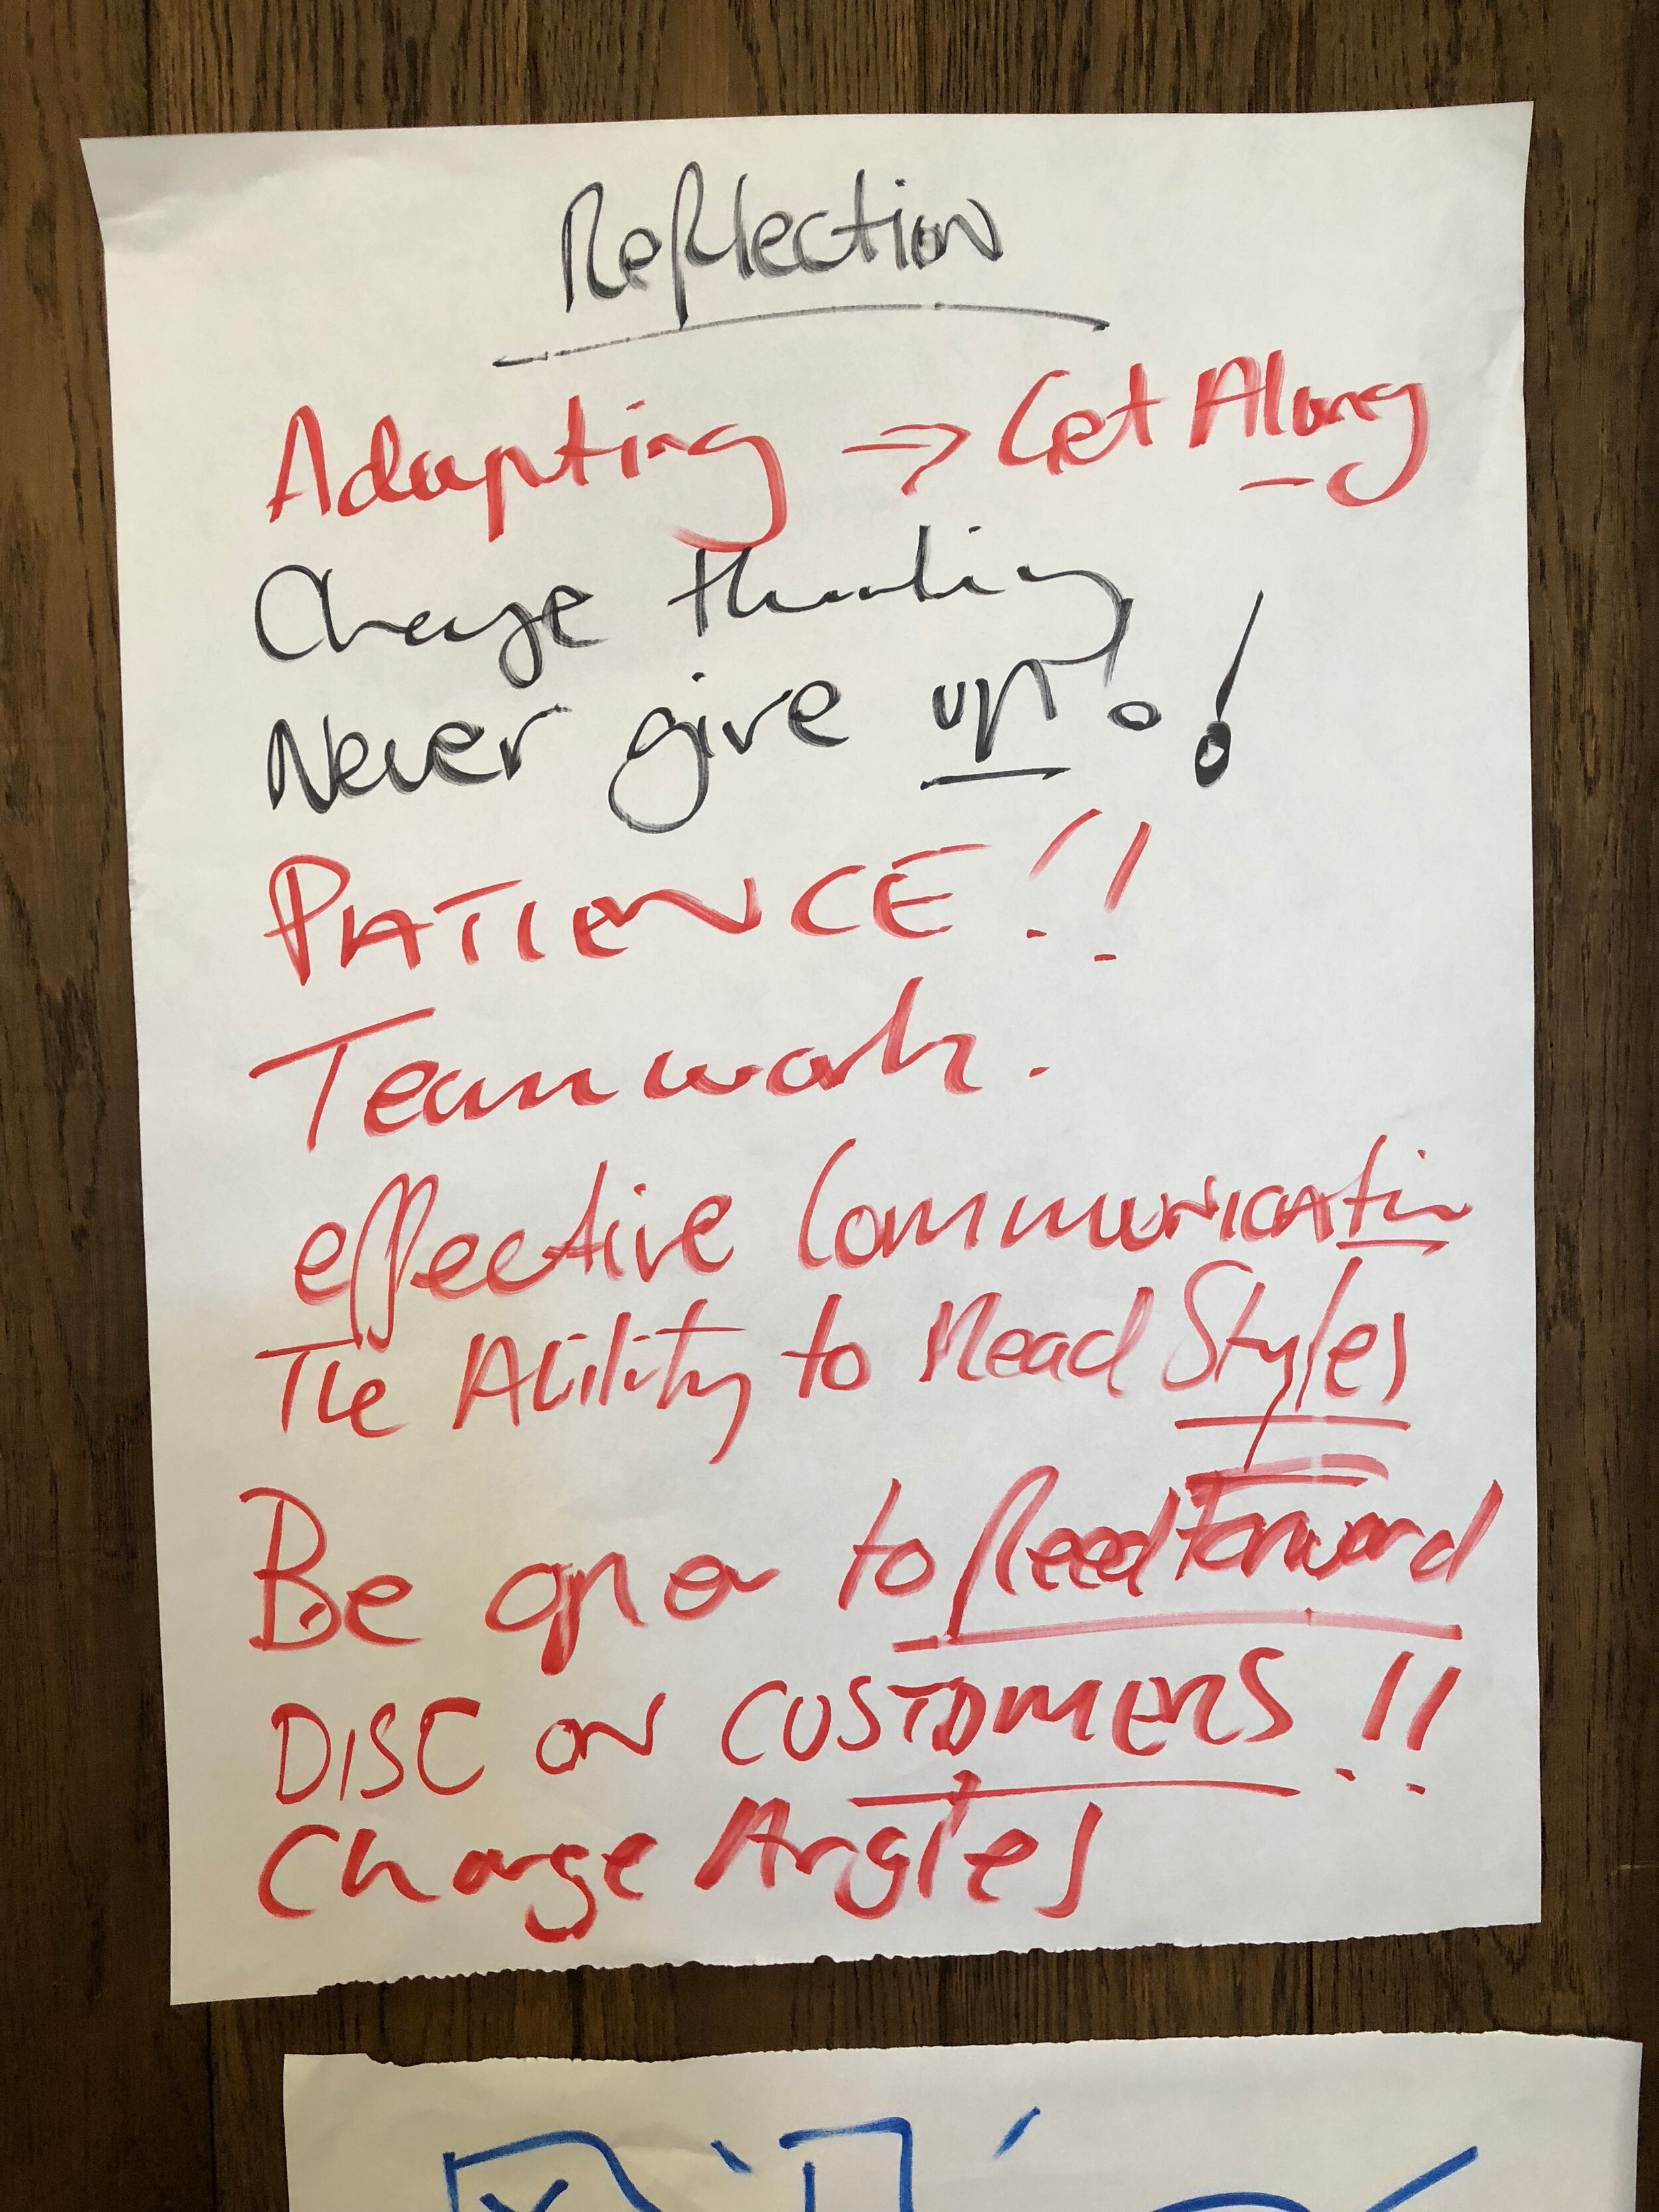 Reflection
Adapting => Get Along
Change thinking
Never give up!
PATIENCE!!
Teamwork.
effective Communication
The Ability to Read Styles
Be open to feedforward
DISC on CUSTOMERS!!
Change Angles